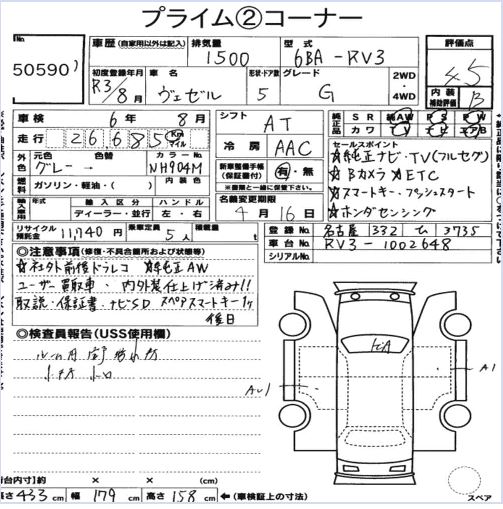 プライム②コーナー
No.
50590
車歴 (自家用以外は記入)
排気量 1500
型式 6BA-RV3
評価点 4.5
初度登録年月 R3/8月
車名 ヴェゼル
形状・ドア数 5
グレード G
2WD
4WD
内装補助評価 B
車検 6年 8月
シフト AT
純正品 SR 純AW PS PW
カワ エアB
走行 26,685 Km マイル
冷房 AAC
セールスポイント
☆純正ナビ・TV(フルセグ)
☆Bカメラ ☆ETC
☆スマートキー・プッシュスタート
☆ホンダセンシング
外色 元色 グレー 色替
カラーNo NH904M
燃料 ガソリン・軽油・( )
内装色
新車整備手帳(保証書付) 有・無
※書類と一緒に保管下さい。
輸入車用 年式 輸入区分 ハンドル
ディーラー・並行 左・右
名義変更期限 4月16日
リサイクル預託金 11,740円
乗車定員 5人
積載量 t
登録 名古屋 332 ム 3735
車台No RV3-1002648
シリアルNo
◎注意事項 (修復・不具合箇所および状態等)
☆社外前後ドラレコ ☆純正AW
ユーザー買取車・内外装仕上げ済み!!
取説・保証書・ナビSD スペアスマートキー1ヶ
後日
◎検査員報告(USS使用欄)
小キ
ガA
A1
A1
荷台内寸)約 × × (cm)
長さ 433 cm 幅 179 cm 高さ 158 cm ←(車検証上の寸法)
スペア